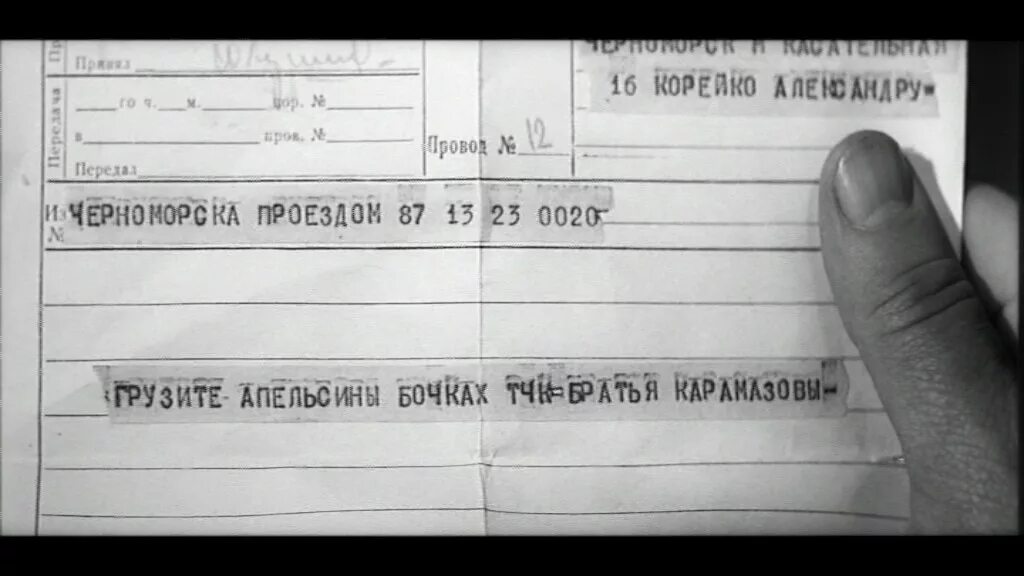 Принял
ЧЕРНОМОРСК М КАСАТЕЛЬНАЯ
16 КОРЕЙКО АЛЕКСАНДРУ=
Передача
го ч. м. пор. №
в пров. №
Передал
Провод № 12
Из ЧЕРНОМОРСКА ПРОЕЗДОМ 87 13 23 0020
№
ГРУЗИТЕ АПЕЛЬСИНЫ БОЧКАХ ТЧК=БРАТЬЯ КАРАМАЗОВЫ-